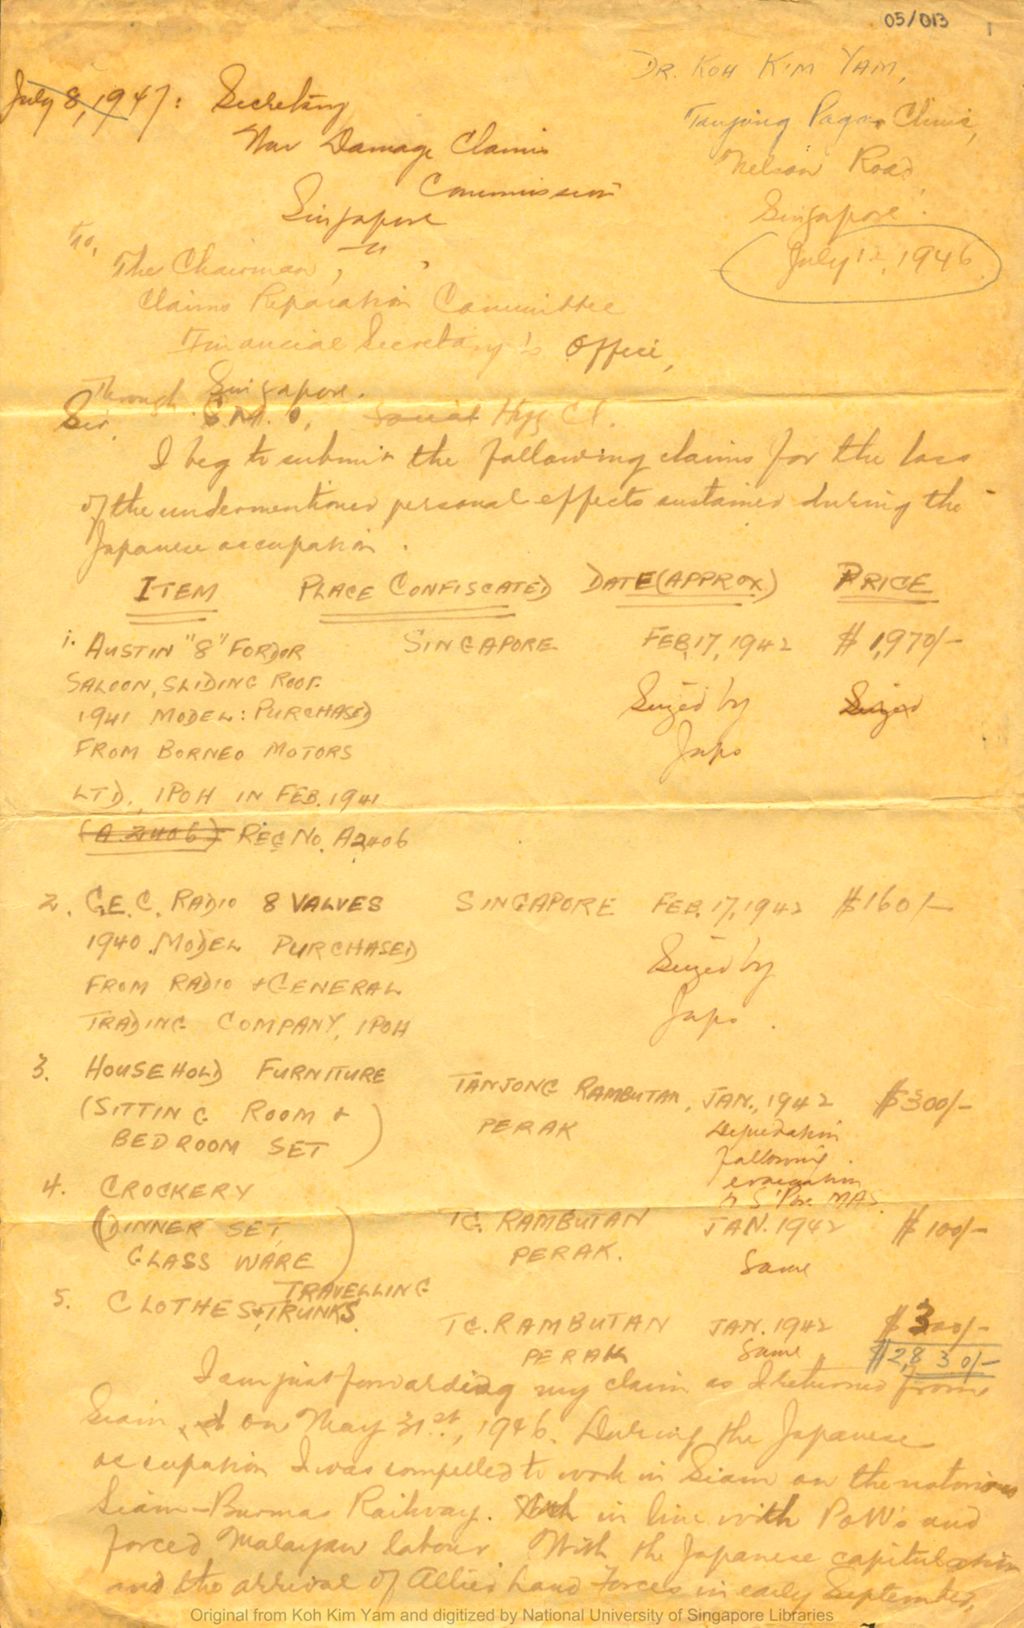 05/013
1
DR. KOH KIM YAM,
Tanjong Pagar Clinic,
Nelson Road,
Singapore.
July 12, 1946.
July 8, 1947: Secretary
War Damage Claims
Commission
Singapore
To,
The Chairman,
Claims Reparation Committee
Financial Secretary's Office,
Singapore.
Through S.M.O.,
Sir,
I beg to submit the following claims for the loss
of the undermentioned personal effects sustained during the
Japanese occupation.
ITEM PLACE CONFISCATED DATE (APPROX) PRICE
1. AUSTIN "8" FORDOR SINGAPORE FEB 17, 1942 $1,970/-
SALOON, SLIDING ROOF. Seized by Seized
1941 MODEL: PURCHASED Japs
FROM BORNEO MOTORS
LTD., IPOH IN FEB. 1941
(A 2406) REG NO. A2406
2. G.E.C. RADIO 8 VALVES SINGAPORE FEB. 17, 1942 $160/-
1940 MODEL PURCHASED Seized by
FROM RADIO + GENERAL Japs.
TRADING COMPANY, IPOH
3. HOUSEHOLD FURNITURE TANJONG RAMBUTAN, JAN., 1942 $300/-
(SITTING ROOM + PERAK
BEDROOM SET)
following
evacuation
to S'Pore
4. CROCKERY
(DINNER SET, TG. RAMBUTAN JAN. 1942 $100/-
GLASS WARE) PERAK. Same
5. CLOTHES + TRAVELLING TRUNKS. TG. RAMBUTAN JAN. 1942 $300/-
PERAK Same $2,830/-
I am just forwarding my claim as I returned from
Siam on May 31st, 1946. During the Japanese
occupation I was compelled to work in Siam on the notorious
Siam-Burma Railway. in line with PoW's and
forced Malayan labour. With the Japanese capitulation
and the arrival of Allied land forces in early September,
Original from Koh Kim Yam and digitized by National University of Singapore Libraries